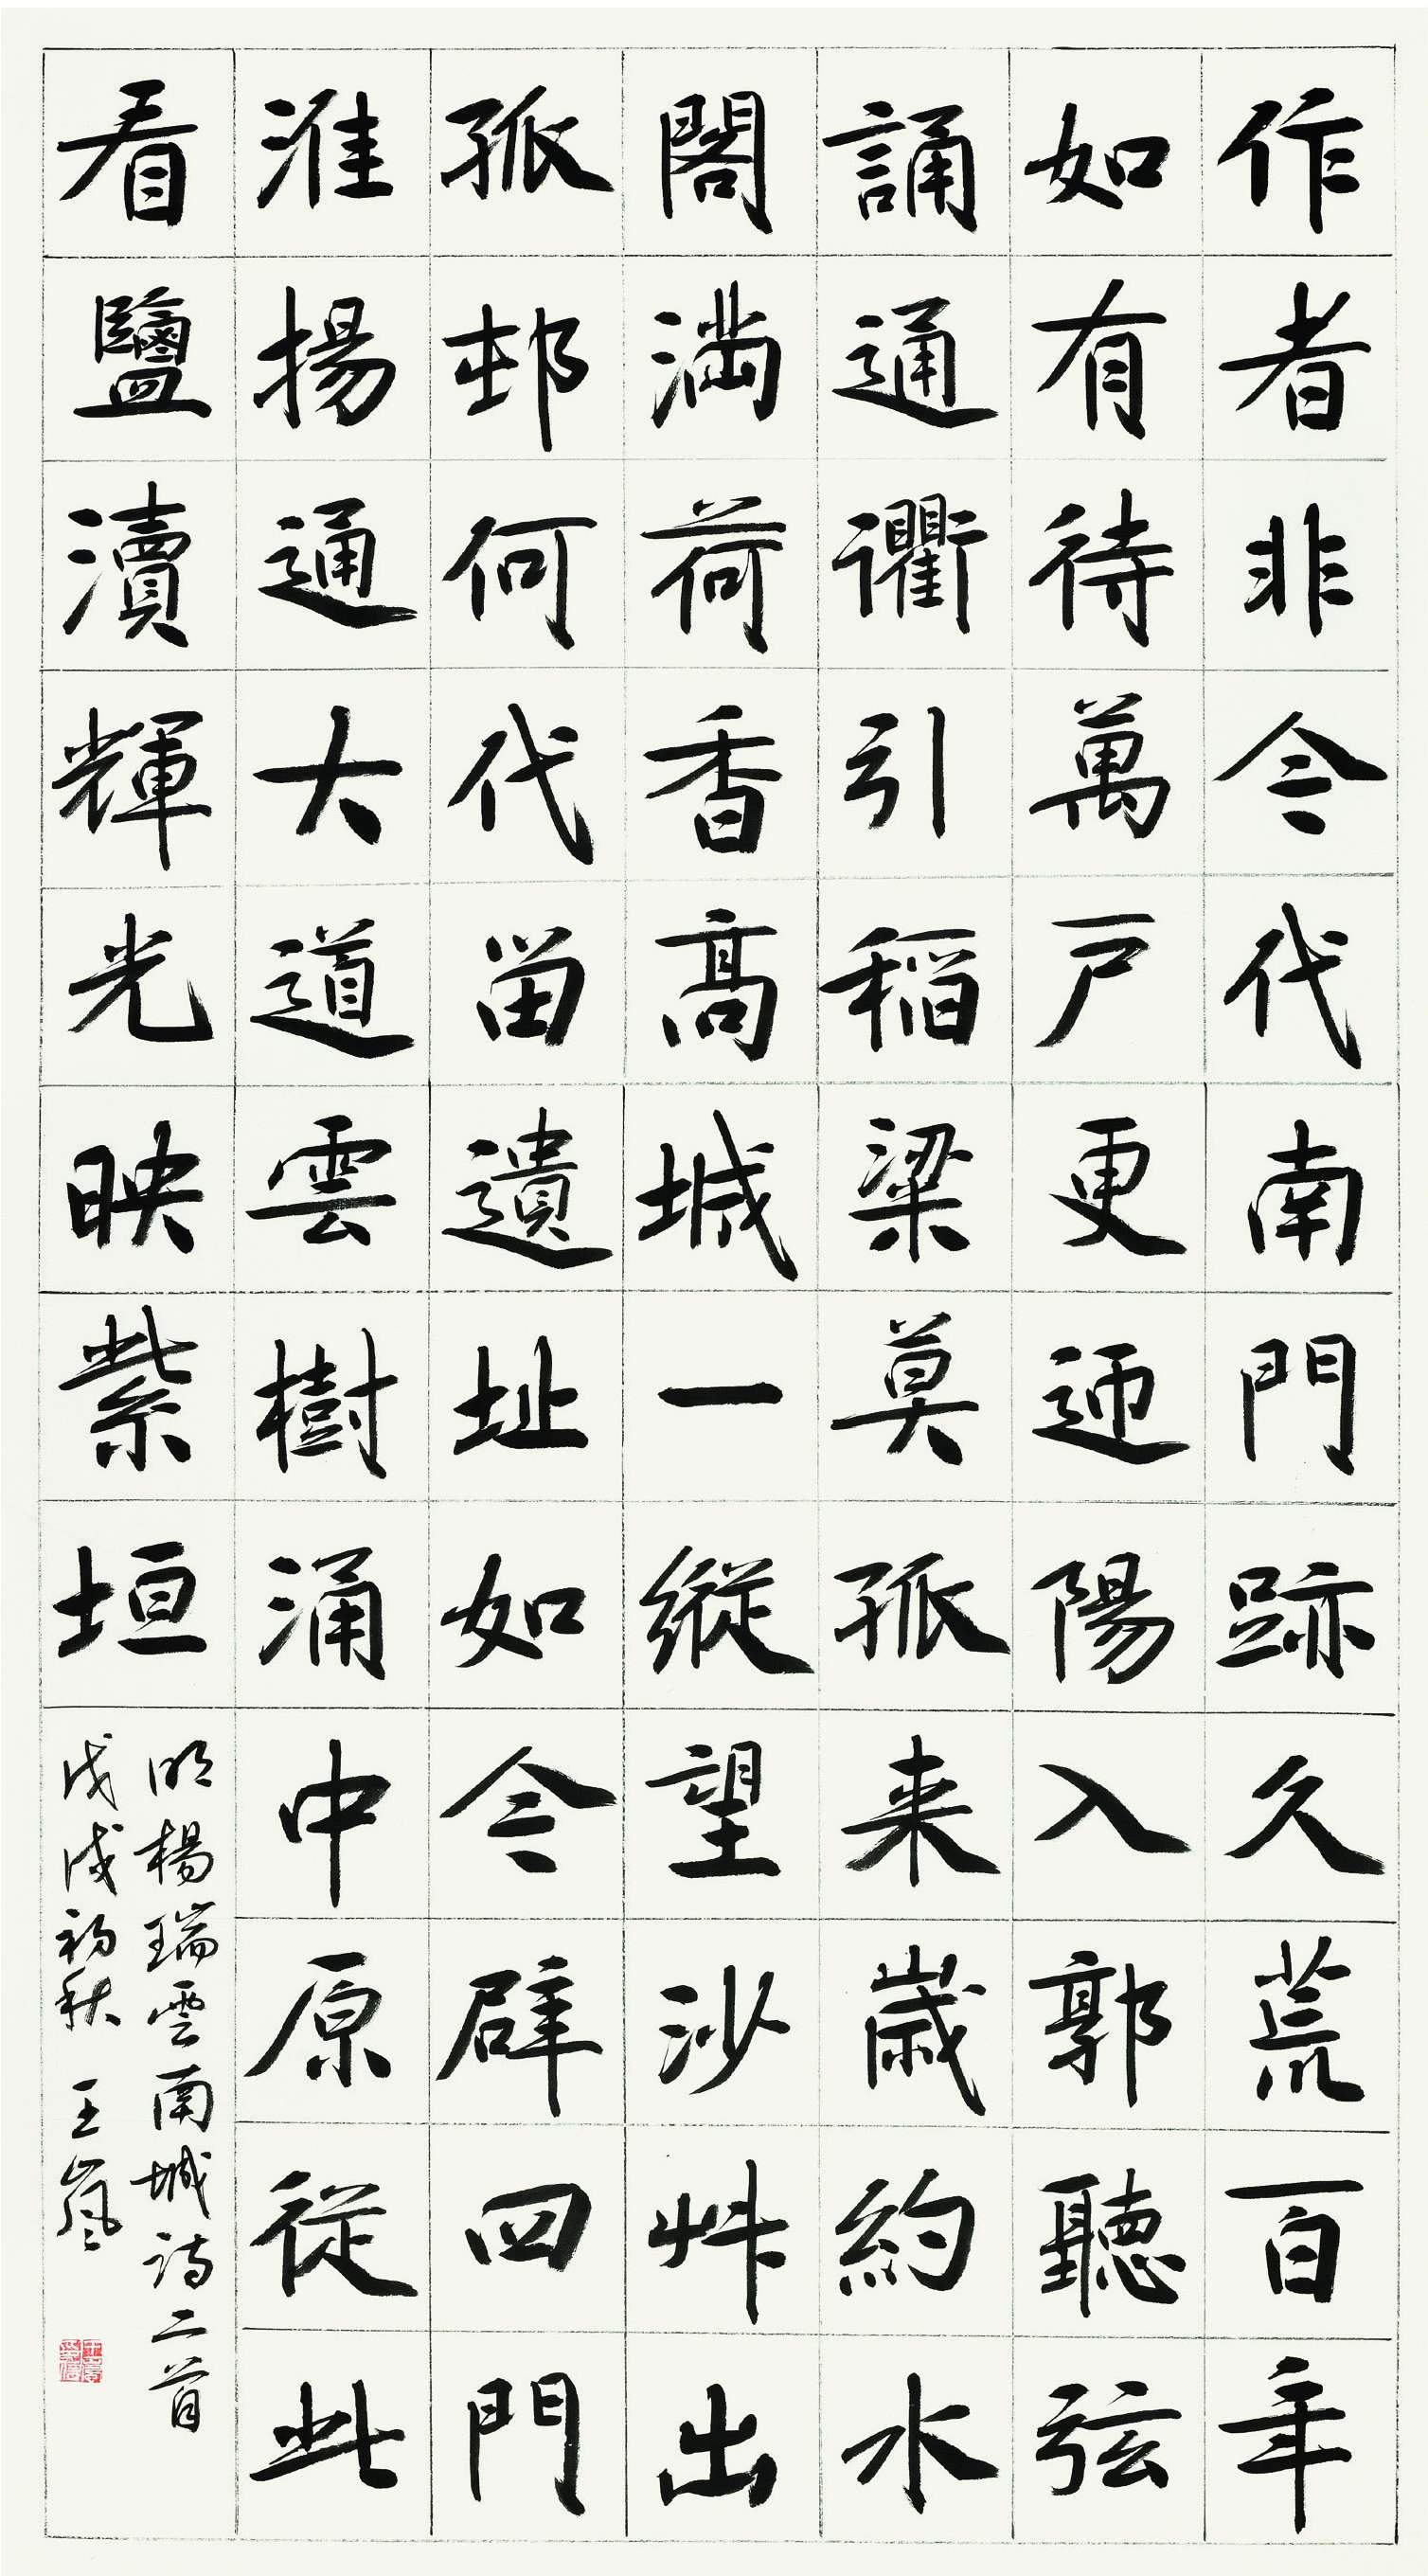 作者非今代南門跡久荒百年
如有待萬戶更迊陽入郭聽弦
誦通衢引稲粱莫孤来歳約水
閣満荷香髙城一縱望沙艸出
孤邨何代畱遺址如今辟四門
淮揚通大道雲樹涌中原從此
看鹽瀆輝光映紫垣
明楊瑞雲南城詩二首
戊戌初秋 王嵐